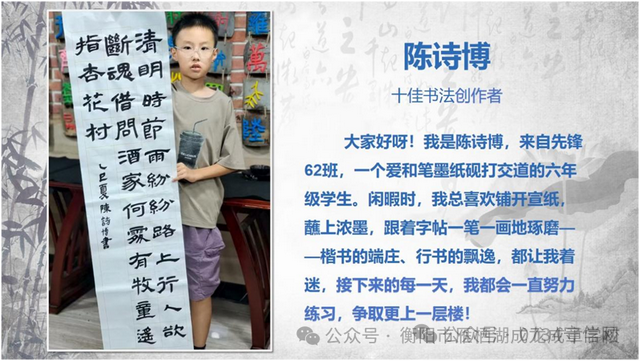 清明時節雨紛紛路上行人欲
斷魂借問酒家何處有牧童遙
指杏花村
乙巳夏陳詩博書
陈诗博
十佳书法创作者
大家好呀！我是陈诗博，来自先锋
62班，一个爱和笔墨纸砚打交道的六年
级学生。闲暇时，我总喜欢铺开宣纸，
蘸上浓墨，跟着字帖一笔一画地琢磨—
—楷书的端庄、行书的飘逸，都让我着
迷，接下来的每一天，我都会一直努力
练习，争取更上一层楼！
公众号 · 衡阳市雁栖湖成龙成章学校
公众号 · 0734守信网